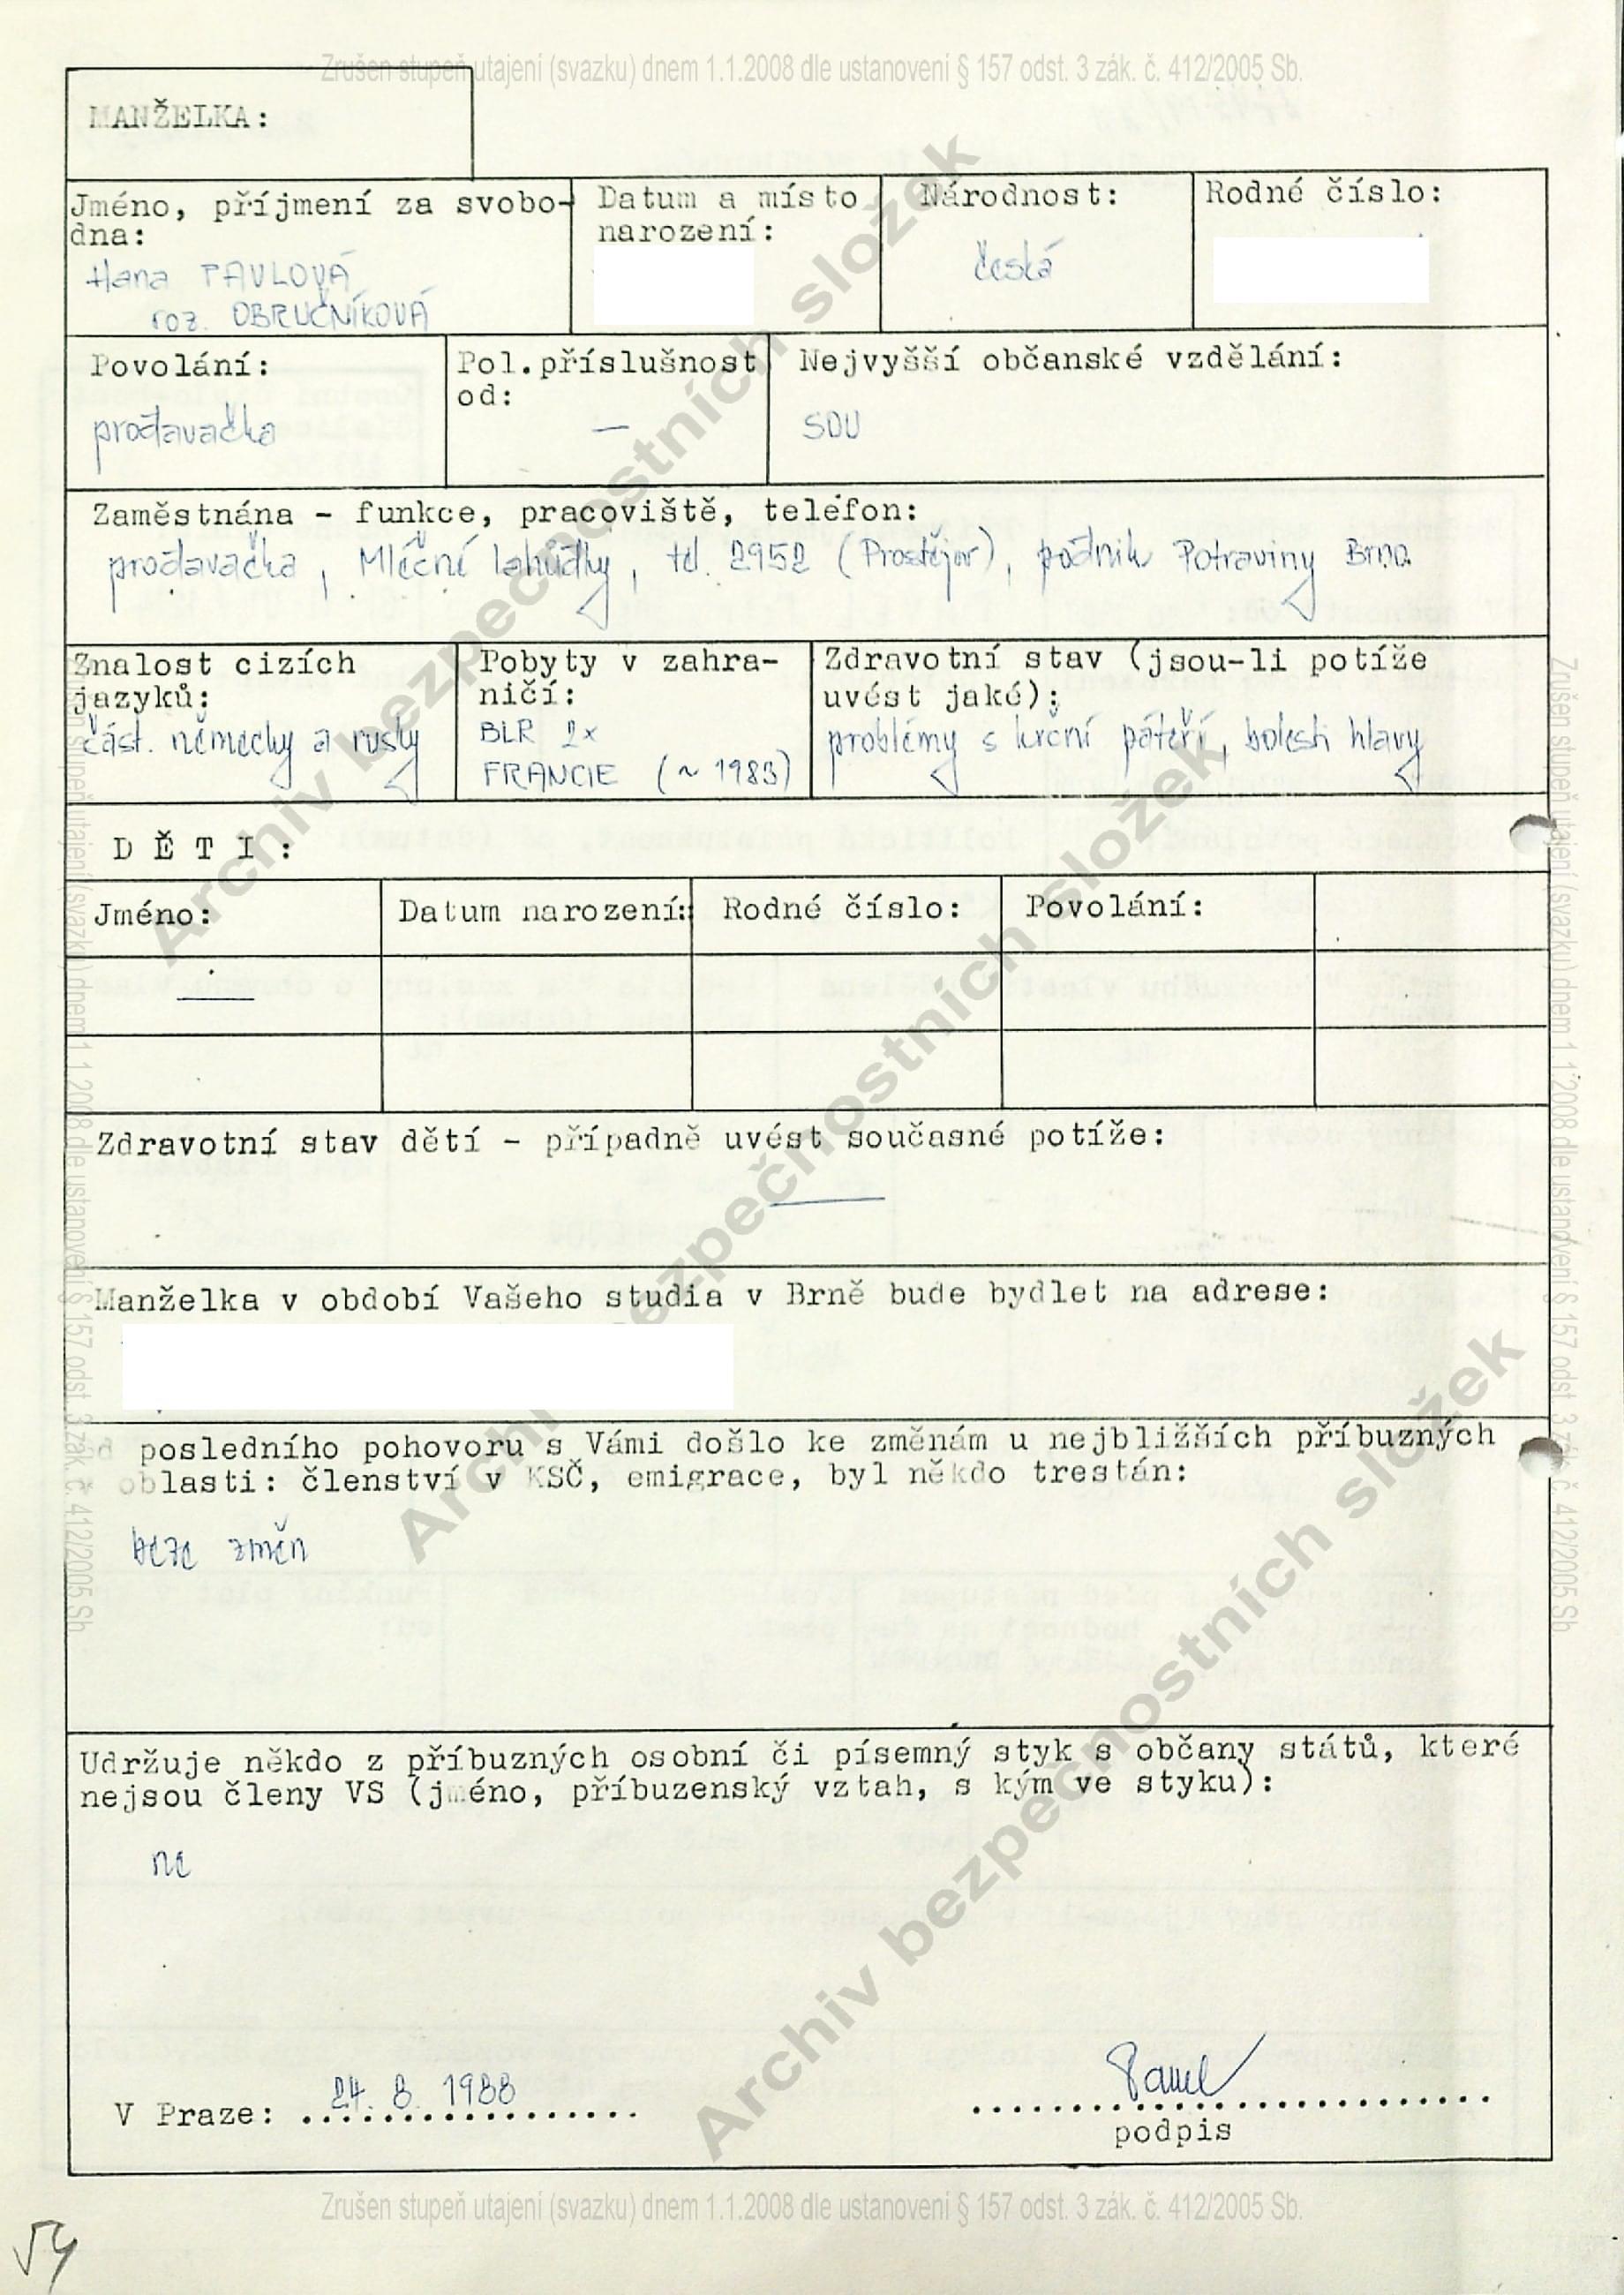 Zrušen stupeň utajení (svazku) dnem 1.1.2008 dle ustanovení § 157 odst. 3 zák. č. 412/2005 Sb.
MANŽELKA:
Jméno, příjmení za svobo-
dna:
Hana PAVLOVÁ
roz. OBRUČNÍKOVÁ
Datum a místo
narození:
Národnost:
česká
Rodné číslo:
Povolání:
prodavačka
Pol.příslušnost
od:
—
Nejvyšší občanské vzdělání:
SOU
Zaměstnána - funkce, pracoviště, telefon:
prodavačka, Mléčné lahůdky, tel. 2952 (Prostějov), podnik Potraviny Brno
Znalost cizích
jazyků:
část. německy a rusky
Pobyty v zahra-
ničí:
BLR 2x
FRANCIE (~ 1983)
Zdravotní stav (jsou-li potíže
uvést jaké):
problémy s krční páteří, bolesti hlavy
D Ě T I :
Jméno: Datum narození: Rodné číslo: Povolání:
—
Zdravotní stav dětí - případně uvést současné potíže:
—
Manželka v období Vašeho studia v Brně bude bydlet na adrese:
od posledního pohovoru s Vámi došlo ke změnám u nejbližších příbuzných
v oblasti: členství v KSČ, emigrace, byl někdo trestán:
beze změn
Udržuje někdo z příbuzných osobní či písemný styk s občany států, které
nejsou členy VS (jméno, příbuzenský vztah, s kým ve styku):
ne
V Praze: 24. 8. 1988
Pavel
podpis
Zrušen stupeň utajení (svazku) dnem 1.1.2008 dle ustanovení § 157 odst. 3 zák. č. 412/2005 Sb.
54
Zrušen stupeň utajení (svazku) dnem 1.1.2008 dle ustanovení § 157 odst. 3 zák. č. 412/2005 Sb.
Zrušen stupeň utajení (svazku) dnem 1.1.2008 dle ustanovení § 157 odst. 3 zák. č. 412/2005 Sb.
Archiv bezpečnostních složek
Archiv bezpečnostních složek
Archiv bezpečnostních složek